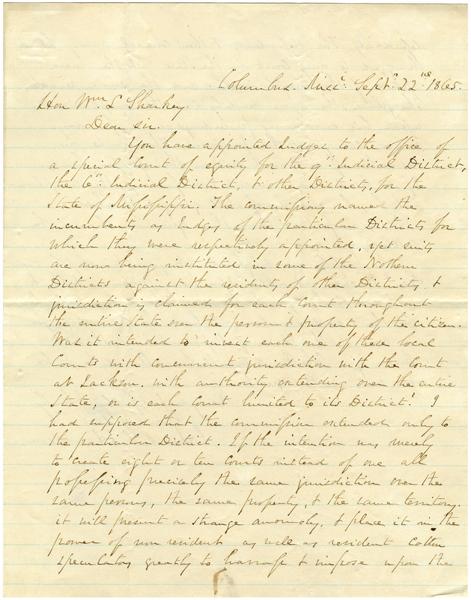 Columbus. Missi. Septr. 22nd 1865.
Hon Wm L Sharkey.
Dear sir.
You have appointed Judges to the office of
a special Court of equity for the 9th Judicial District,
the 6th Judicial District, & other Districts, for the
State of Mississippi. The commissions named the
incumbents as Judges of the particular Districts for
which they were respectively appointed, yet suits
are now being instituted in some of the Nothern
Districts against the residents of other Districts, &
jurisdiction is claimed for each Court throughout
the entire State over the person & property of the citizen.
Was it intended to invest each one of these local
Courts with concurrent jurisdiction with the Court
at Jackson, with authority extending over the entire
State, or is each Court limited to its District? I
had supposed that the commission extended only to
the particular District. If the intention was merely
to create eight or ten Courts instead of one all
professing precisely the same jurisdiction over the
same persons, the same property, & the same territory.
it will present a strange anomoly, & place it in the
power of non resident as well as resident Cotton
speculators greatly to harrass & impose upon the